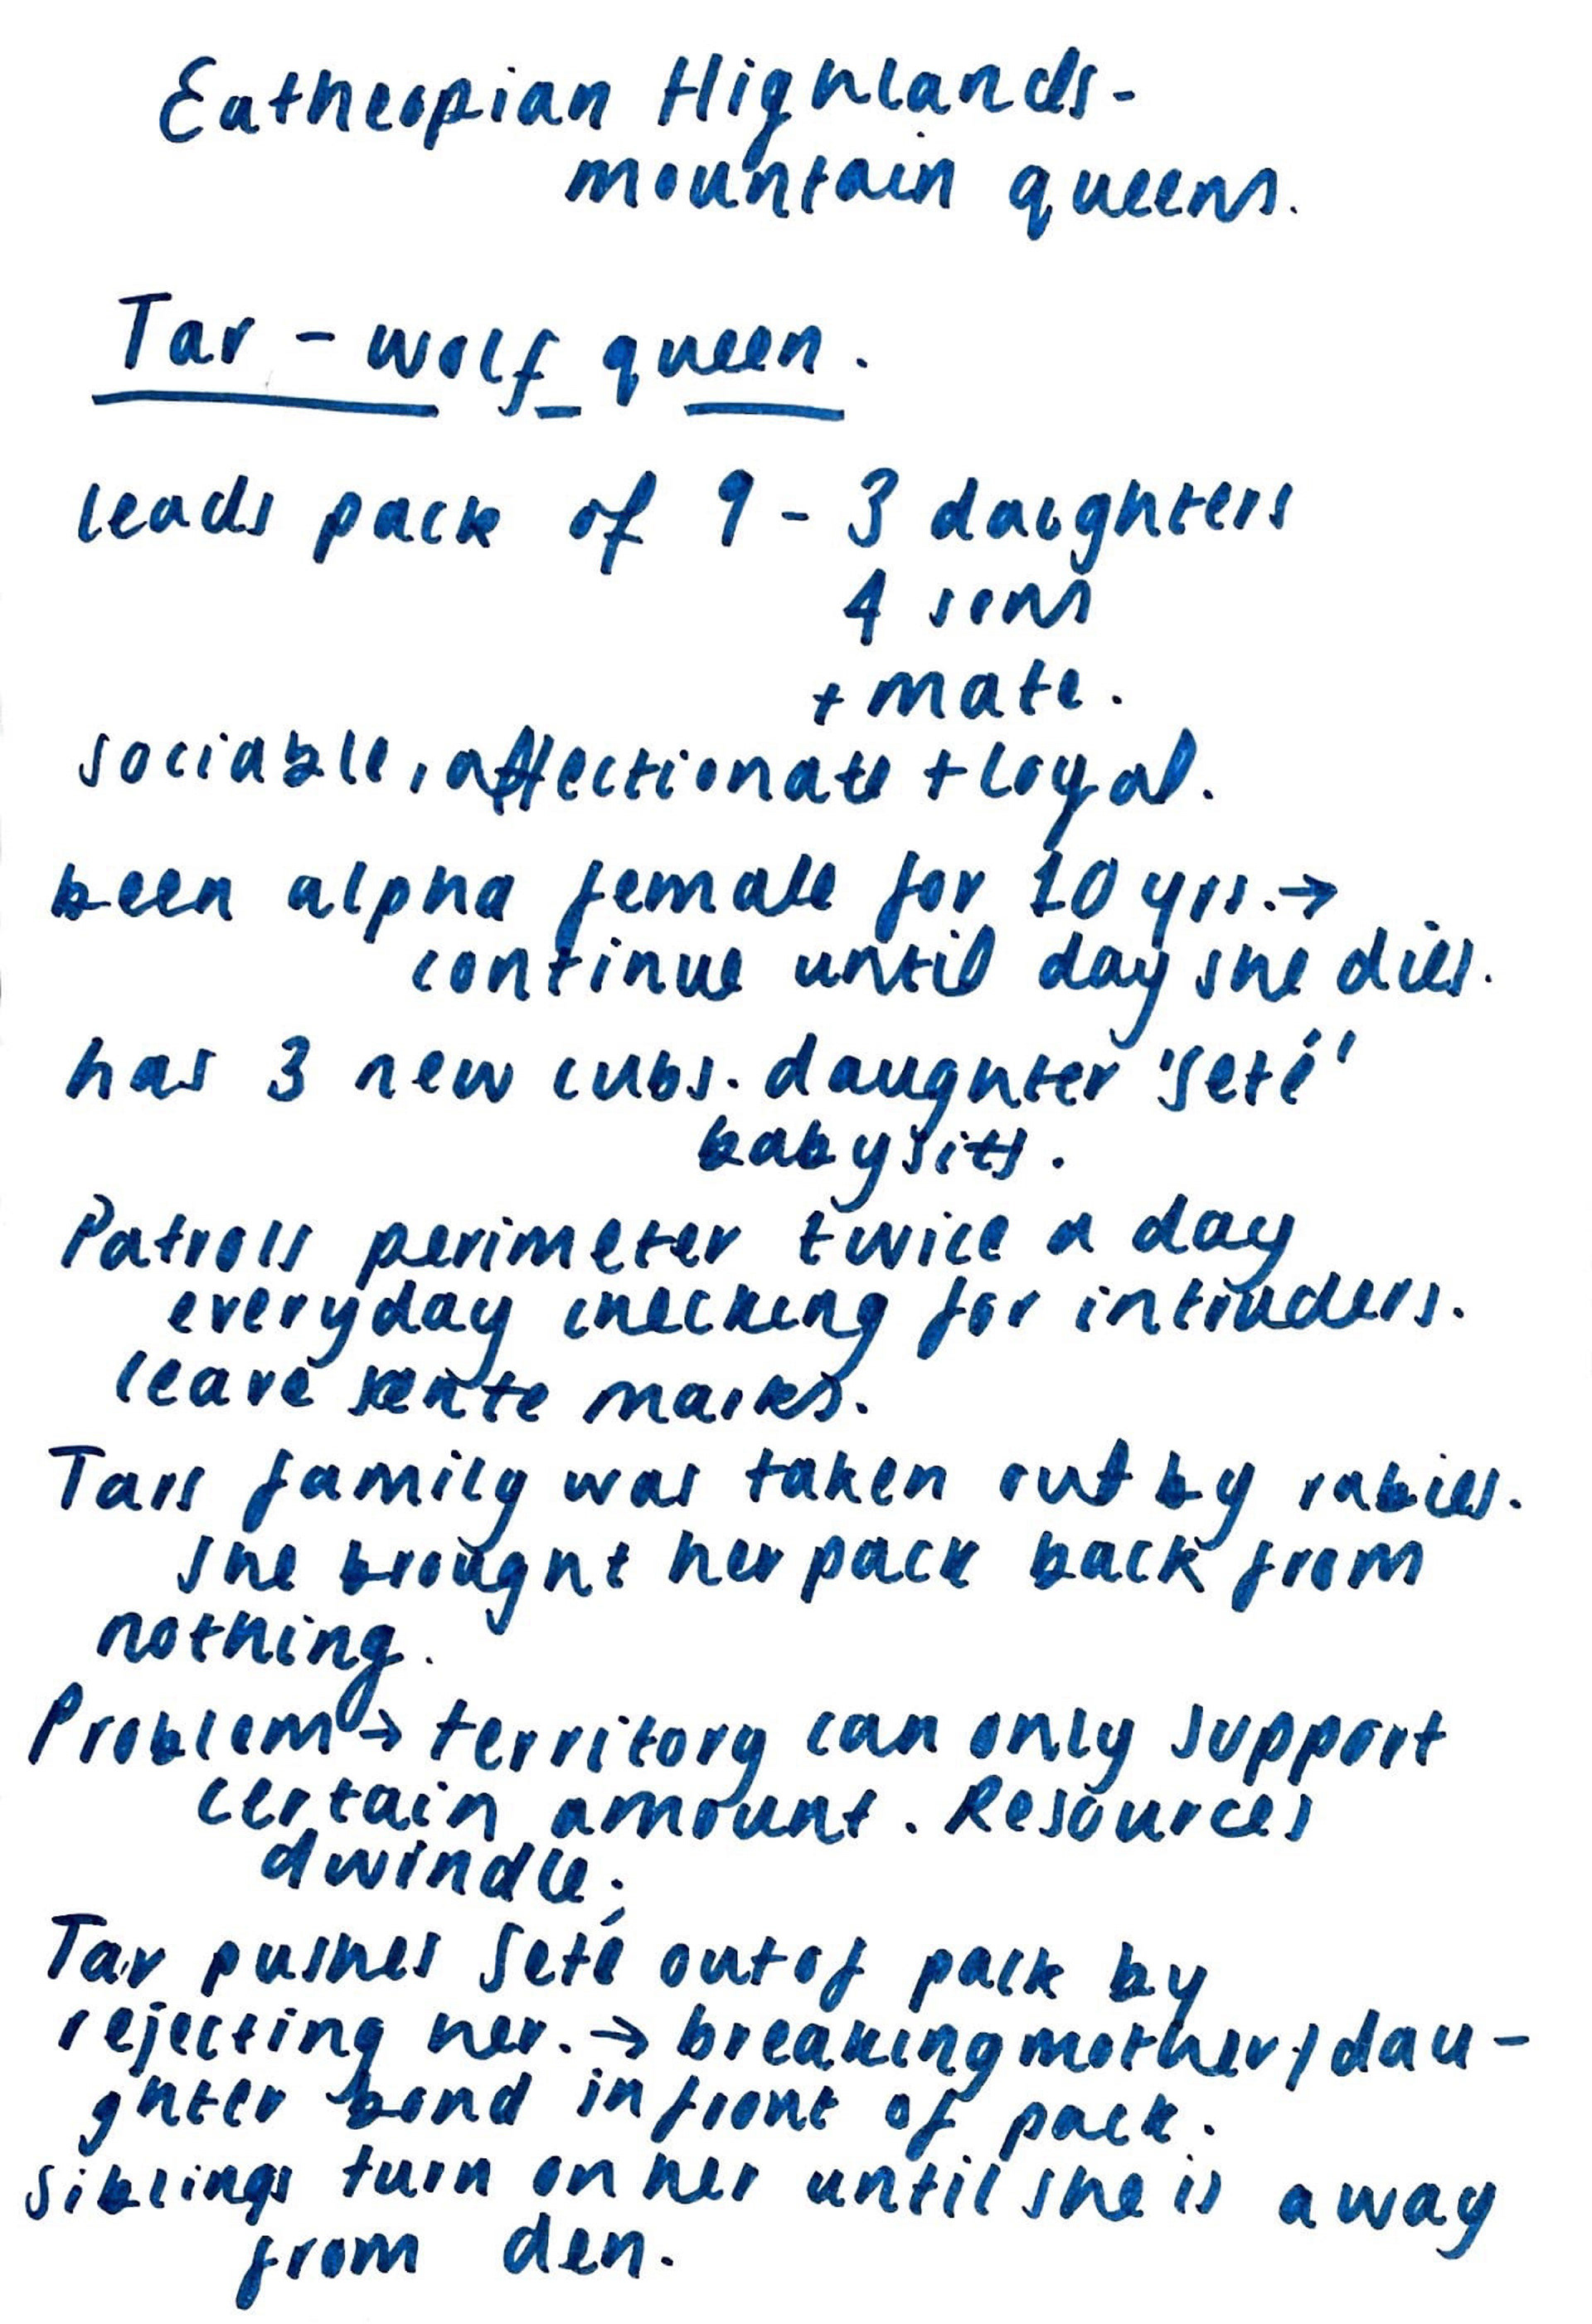 Eatheopian Highlands-
mountain queens.
Tar - wolf queen.
leads pack of 9 - 3 daughters
4 sons
+ mate.
sociable, affectionate + loyal.
been alpha female for 10 yrs. →
continue until day she dies.
has 3 new cubs. daughter 'Seté'
babysits.
Patrolls perimeter twice a day
everyday checking for intruders.
leave sente marks.
Tars family was taken out by rabies.
she brought her pack back from
nothing.
Problem → territory can only support
certain amount. Resources
dwindle.
Tar pushes Seté out of pack by
rejecting her. → breaking mother / dau-
ghter bond in front of pack.
Siblings turn on her until she is away
from den.